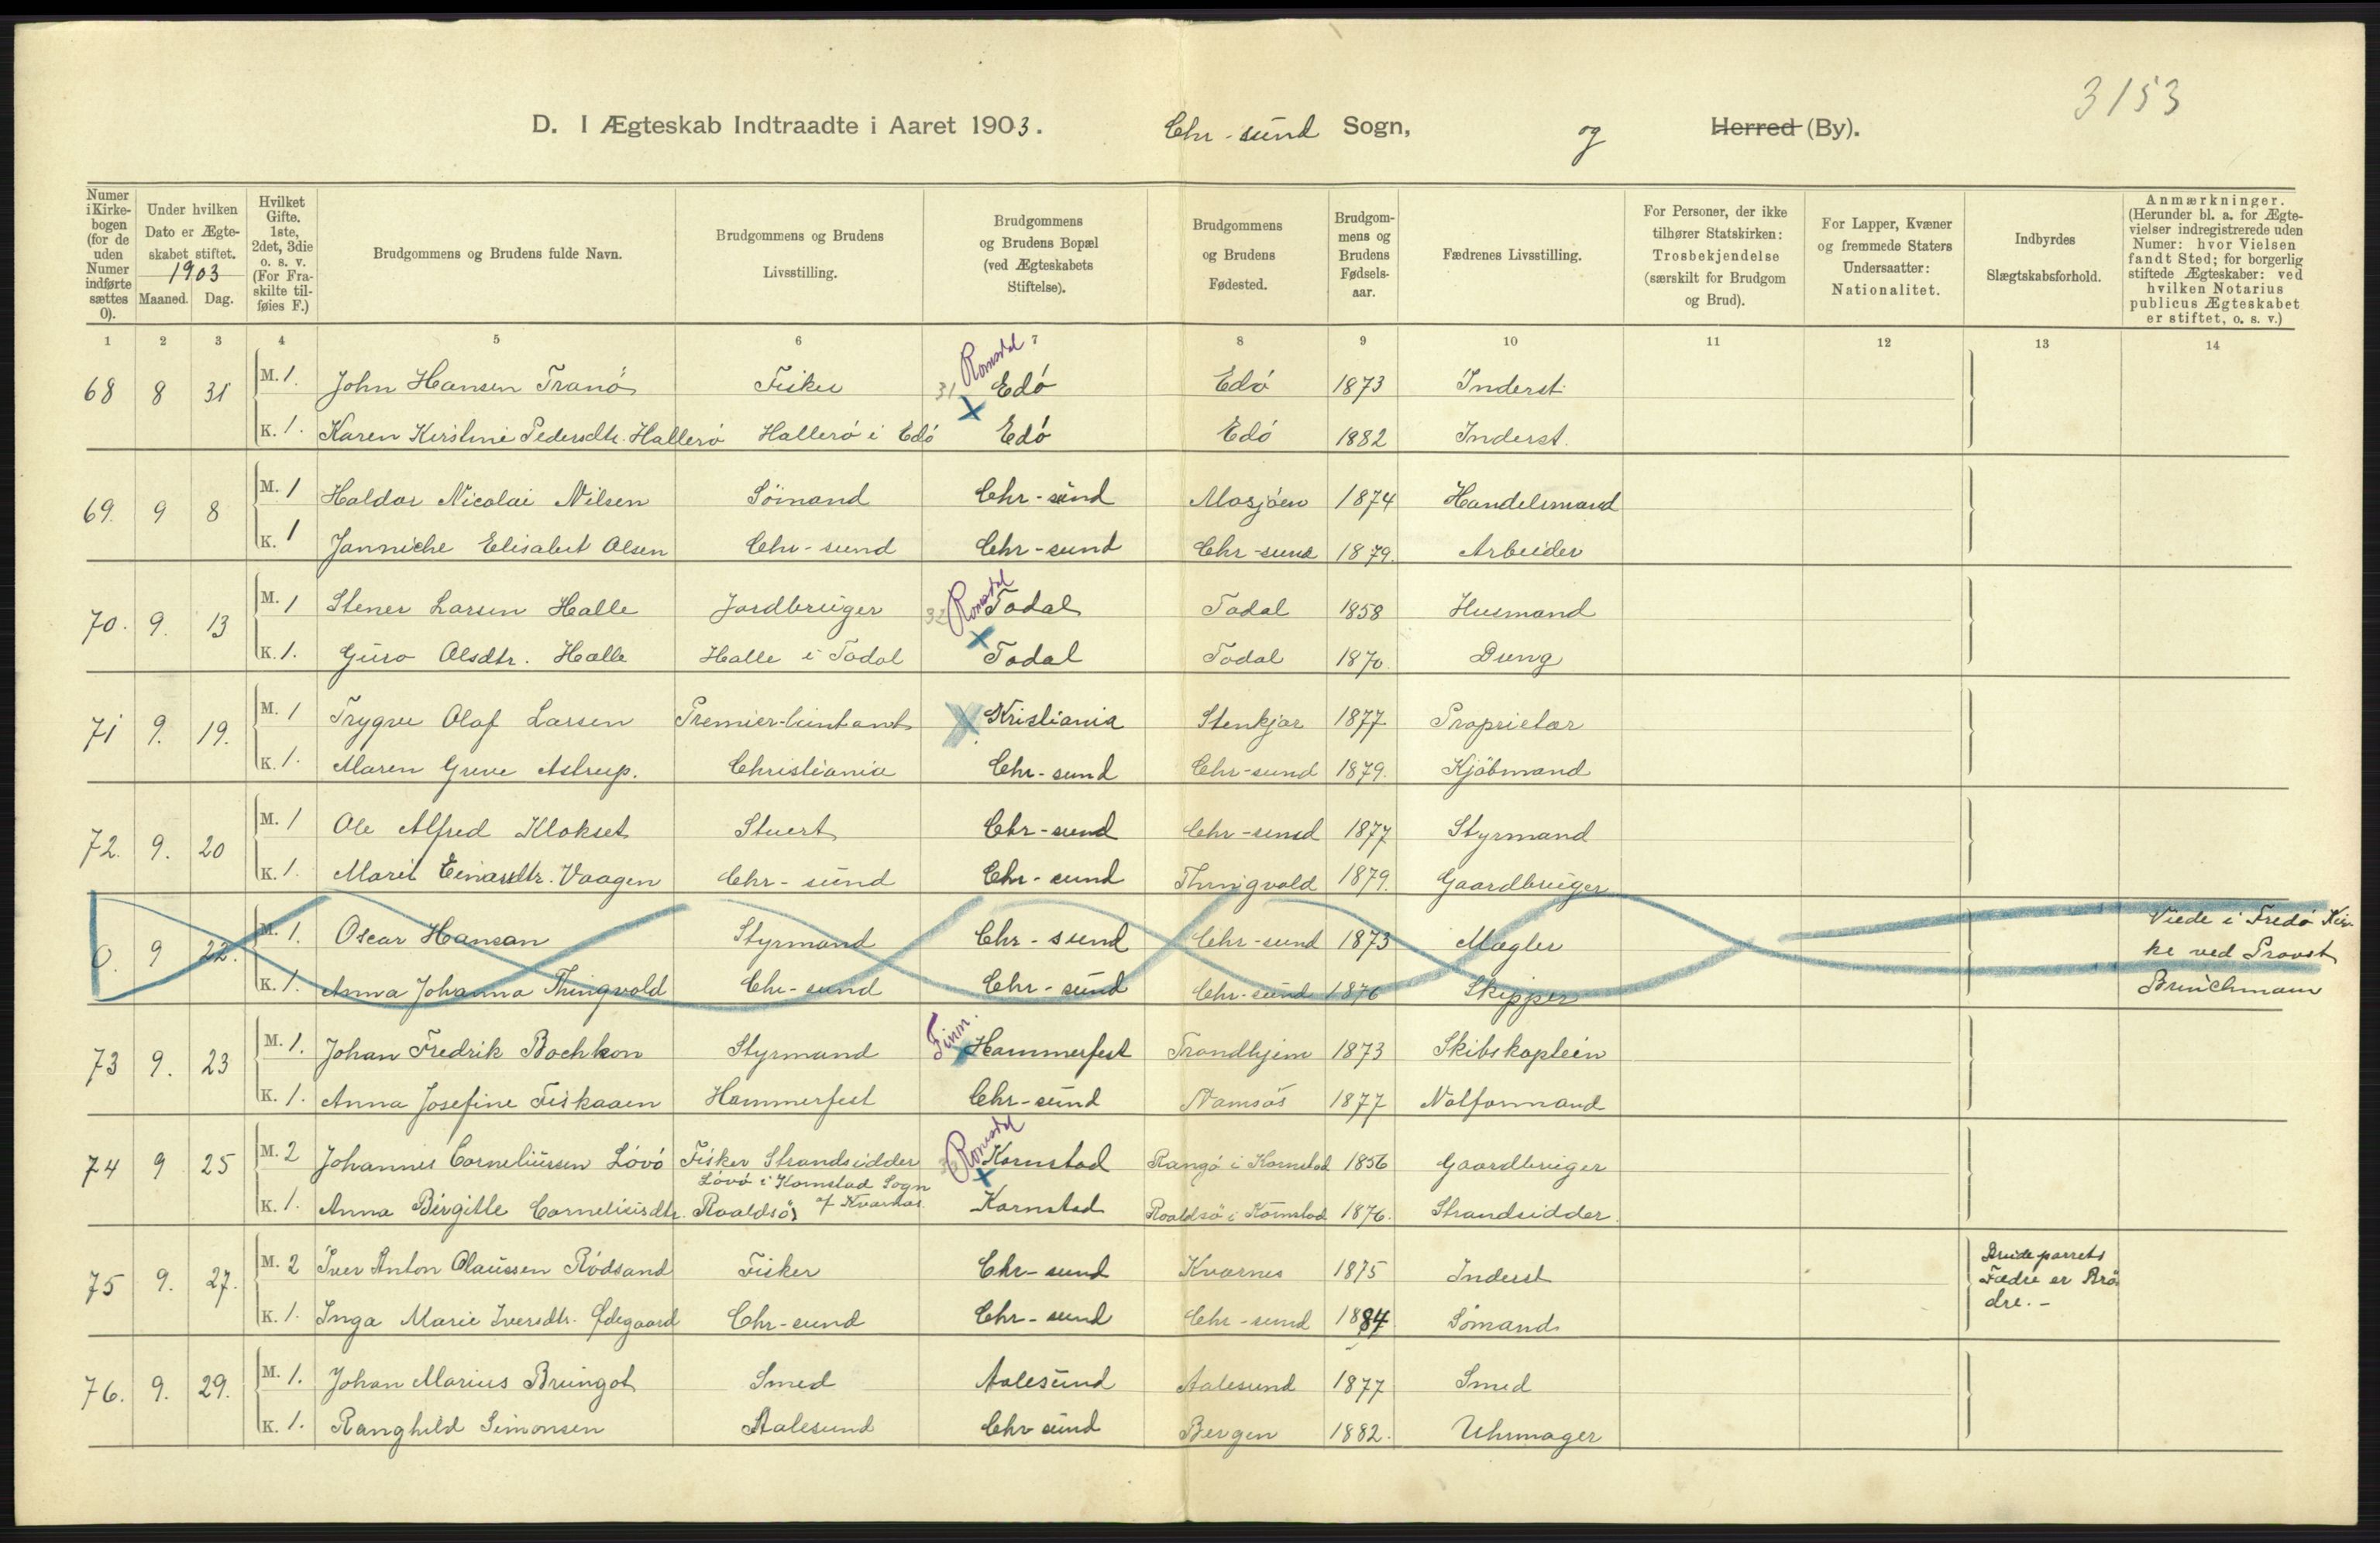 3153
D. I Ægteskab Indtraadte i Aaret 1903. Chr-sund Sogn, og Herred (By).
Numer i Kirkebogen (for de uden Numer indførte sættes 0).
Under hvilken Dato er Ægteskabet stiftet. 1903 Maaned. Dag.
Hvilket Gifte. 1ste, 2det, 3die o. s. v. (For Fraskilte tilføies F.)
Brudgommens og Brudens fulde Navn.
Brudgommens og Brudens Livsstilling.
Brudgommens og Brudens Bopæl (ved Ægteskabets Stiftelse).
Brudgommens og Brudens Fødested.
Brudgommens og Brudens Fødselsaar.
Fædrenes Livsstilling.
For Personer, der ikke tilhører Statskirken: Trosbekjendelse (særskilt for Brudgom og Brud).
For Lapper, Kvæner og fremmede Staters Undersaatter: Nationalitet.
Indbyrdes Slægtskabsforhold.
Anmærkninger. (Herunder bl. a. for Ægtevielser indregistrerede uden Numer: hvor Vielsen fandt Sted; for borgerlig stiftede Ægteskaber: ved hvilken Notarius publicus Ægteskabet er stiftet, o. s. v.)
1 2 3 4 5 6 7 8 9 10 11 12 13 14
68 8 31 M. 1. John Hansen Tranö Fisker 31 Romsdal Edö Edö 1873 Inderst
K. 1. Karen Kirstine Pedersdtr. Hallerö Hallerö i Edö Edö Edö 1882 Inderst.
69. 9 8 M. 1 Haldor Nicolai Nilsen Sömand Chr-sund Mosjöen 1874 Handelsmand
K. 1 Janniche Elisabet Olsen Chr-sund Chr-sund Chr-sund 1879. Arbeider
70. 9. 13 M. 1 Stener Larsen Halle Jordbruger 32 Romsdal Todal Todal 1858 Husmand
K. 1. Guro Olsdtr. Halle Halle i Todal Todal Todal 1870. Dreng
71 9. 19. M. 1 Trygve Olaf Larsen Premier-leintant Kristiania Stenkjær 1877 Proprietær
K. 1. Maren Greve Astrup. Christiania Chr-sund Chr-sund 1879. Kjöbmand
72. 9. 20 M. 1 Ole Alfred Klokset Stuert Chr-sund Chr-sund 1877 Styrmand
K. 1. Marit Einarsdtr. Vaagen Chr-sund Chr-sund Thingvold 1879. Gaardbruger
0. 9 22. M. 1. Oscar Hansen Styrmand Chr-sund Chr-sund 1873 Mægler Viede i Fredö Kir-
ke ved Provst
K. 1. Anna Johanna Thingvold Chr-sund Chr-sund Chr-sund 1876 Skipper Brüchmann
73 9. 23 M. 1. Johan Fredrik Bochkon Styrmand Finm. Hammerfest Trondhjem 1873 Skibskaptein
K. 1. Anna Josefine Fiskaaen Hammerfest Chr-sund Namsos 1877 Notformand
74 9 25 M. 2 Johannes Corneliussen Lövö Fisker Strandsidder Romsdal Kornstad Rangö i Kornstad 1856 Gaardbruger
Lövö i Kornstad Sogn
K. 1. Anna Birgitte Corneliusdtr. Roaldsö af Kvarnæs. Kornstad Roaldsö i Kornstad 1876. Strandsidder.
75 9. 27. M. 2 Iver Anton Olaussen Rödsand Fisker Chr-sund Kværnes 1875 Inderst Brudeparrets
Fædre er Brö-
dre.-
K. 1. Inga Marie Iversdtr. Ødegaard Chr-sund Chr-sund Chr-sund 1884 Sömand
76. 9. 29. M. 1. Johan Marius Brungot Smed Aalesund Aalesund 1877 Smed
K. 1. Ranghild Simonsen Aalesund Chr-sund Bergen 1882. Uhrmager